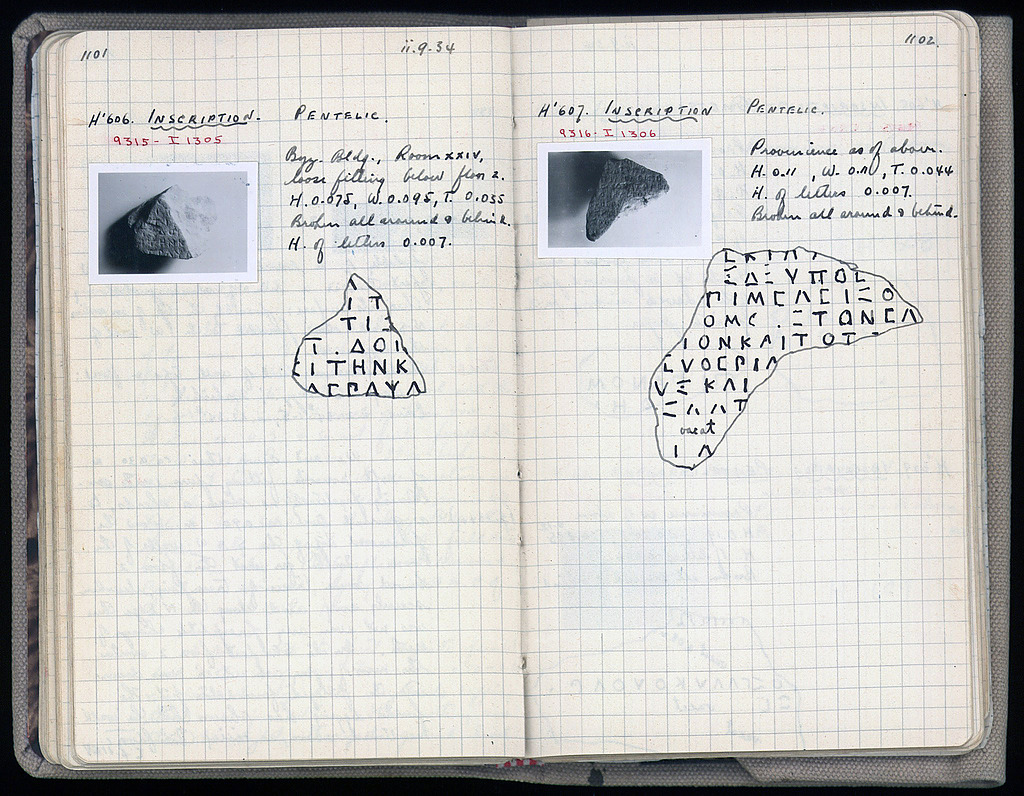 1101
ii.9.34
H'606. INSCRIPTION.
PENTELIC.
9315- I 1305
Byz. Bldg., Room XXIV,
loose filling below floor 2.
H. 0.075, W. 0.095, T. 0.035
Broken all around & behind.
H. of letters 0.007.
Λ
Ι Τ
Τ Ι Ξ
Τ . Δ Ο Ι
Ι Τ Η Ν Κ
Ρ Α Ψ Α
1102.
H'607. INSCRIPTION
PENTELIC.
9316- I 1306
Provenience as of above.
H. 0.11, W. 0.10, T. 0.044
H. of letters 0.007.
Broken all around & behind.
Ξ Δ Ξ Υ Π Ο Σ
Γ Ι Μ Ε Λ Ε Ι Ξ Ο
Ο Μ Ε . Ξ Τ Ω Ν Ε Λ
Ι Ο Ν Κ Α Ι Τ Ο Τ
Ε Υ Ο Ε Ρ Ι Α
Υ Ξ Κ Α Ι
Ξ Λ Λ Τ
vacat
Ι Λ